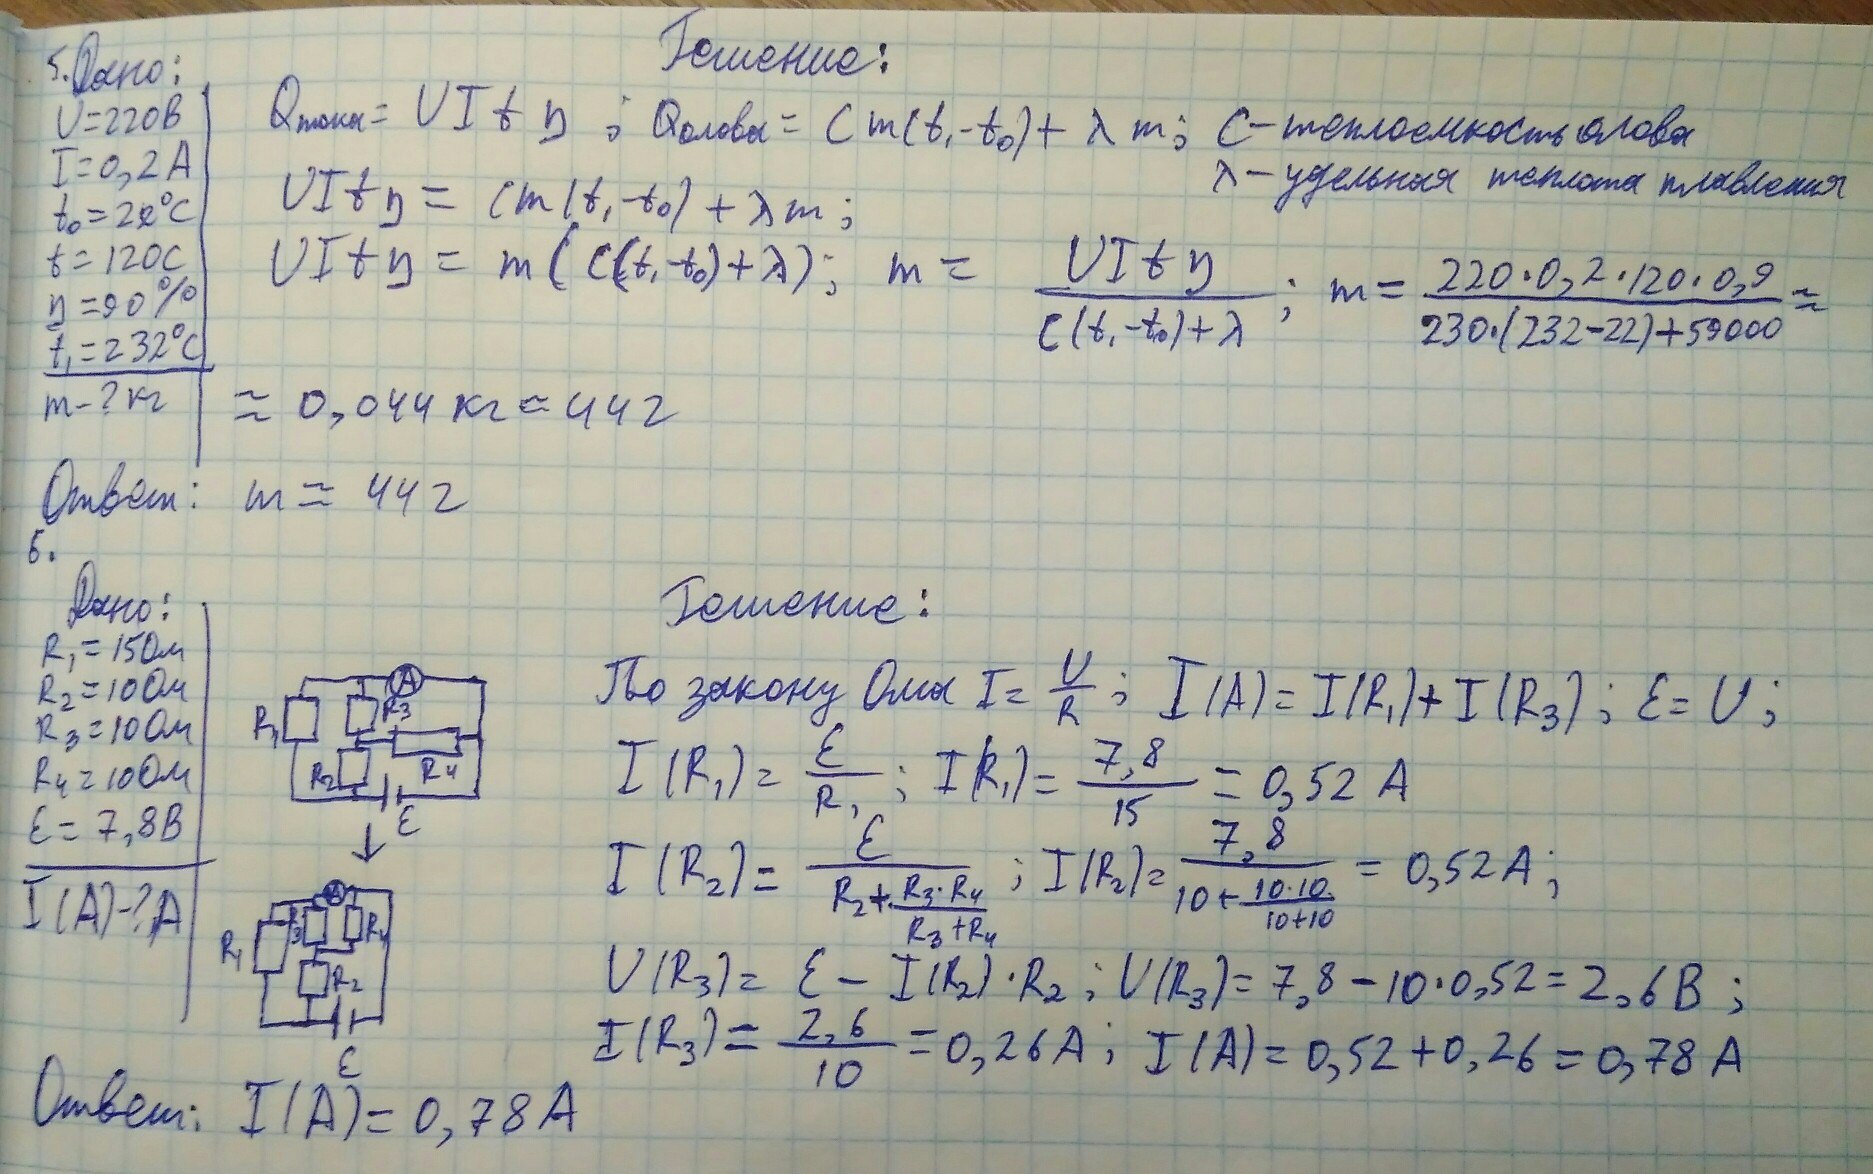 5. Дано:
Решение:
U=220В
I=0,2А
t₀=22°C
t=120C
η=90%
t₁=232°C
m-?кг
Qтока= UItη ; Qолова= Cm(t₁-t₀)+λm; C-теплоемкость олова
λ-удельная теплота плавления
UItη = Cm(t₁-t₀)+λm;
UItη = m(C(t₁-t₀)+λ); m= UItη / C(t₁-t₀)+λ ; m= 220·0,2·120·0,9 / 230·(232-22)+59000 ≈
≈ 0,044кг=44г
Ответ: m≈44г
6.
Дано:
Решение:
R₁=15Ом
R₂=10Ом
R₃=10Ом
R₄=10Ом
ε=7,8В
I(A)-?А
A
R₁
R₃
R₂
R₄
ε
A
R₁
R₄
R₂
ε
По закону Ома I= U/R ; I(A)=I(R₁)+I(R₃); ε=U;
I(R₁)= ε/R₁ ; I(R₁)= 7,8/15 =0,52 А
I(R₂)= ε / R₂+ R₃·R₄/R₃+R₄ ; I(R₂)= 7,8 / 10+ 10·10/10+10 = 0,52А;
U(R₃)= ε-I(R₂)·R₂; U(R₃)=7,8-10·0,52=2,6В;
I(R₃)= 2,6/10 =0,26А; I(A)=0,52+0,26=0,78А
Ответ: I(A)=0,78А